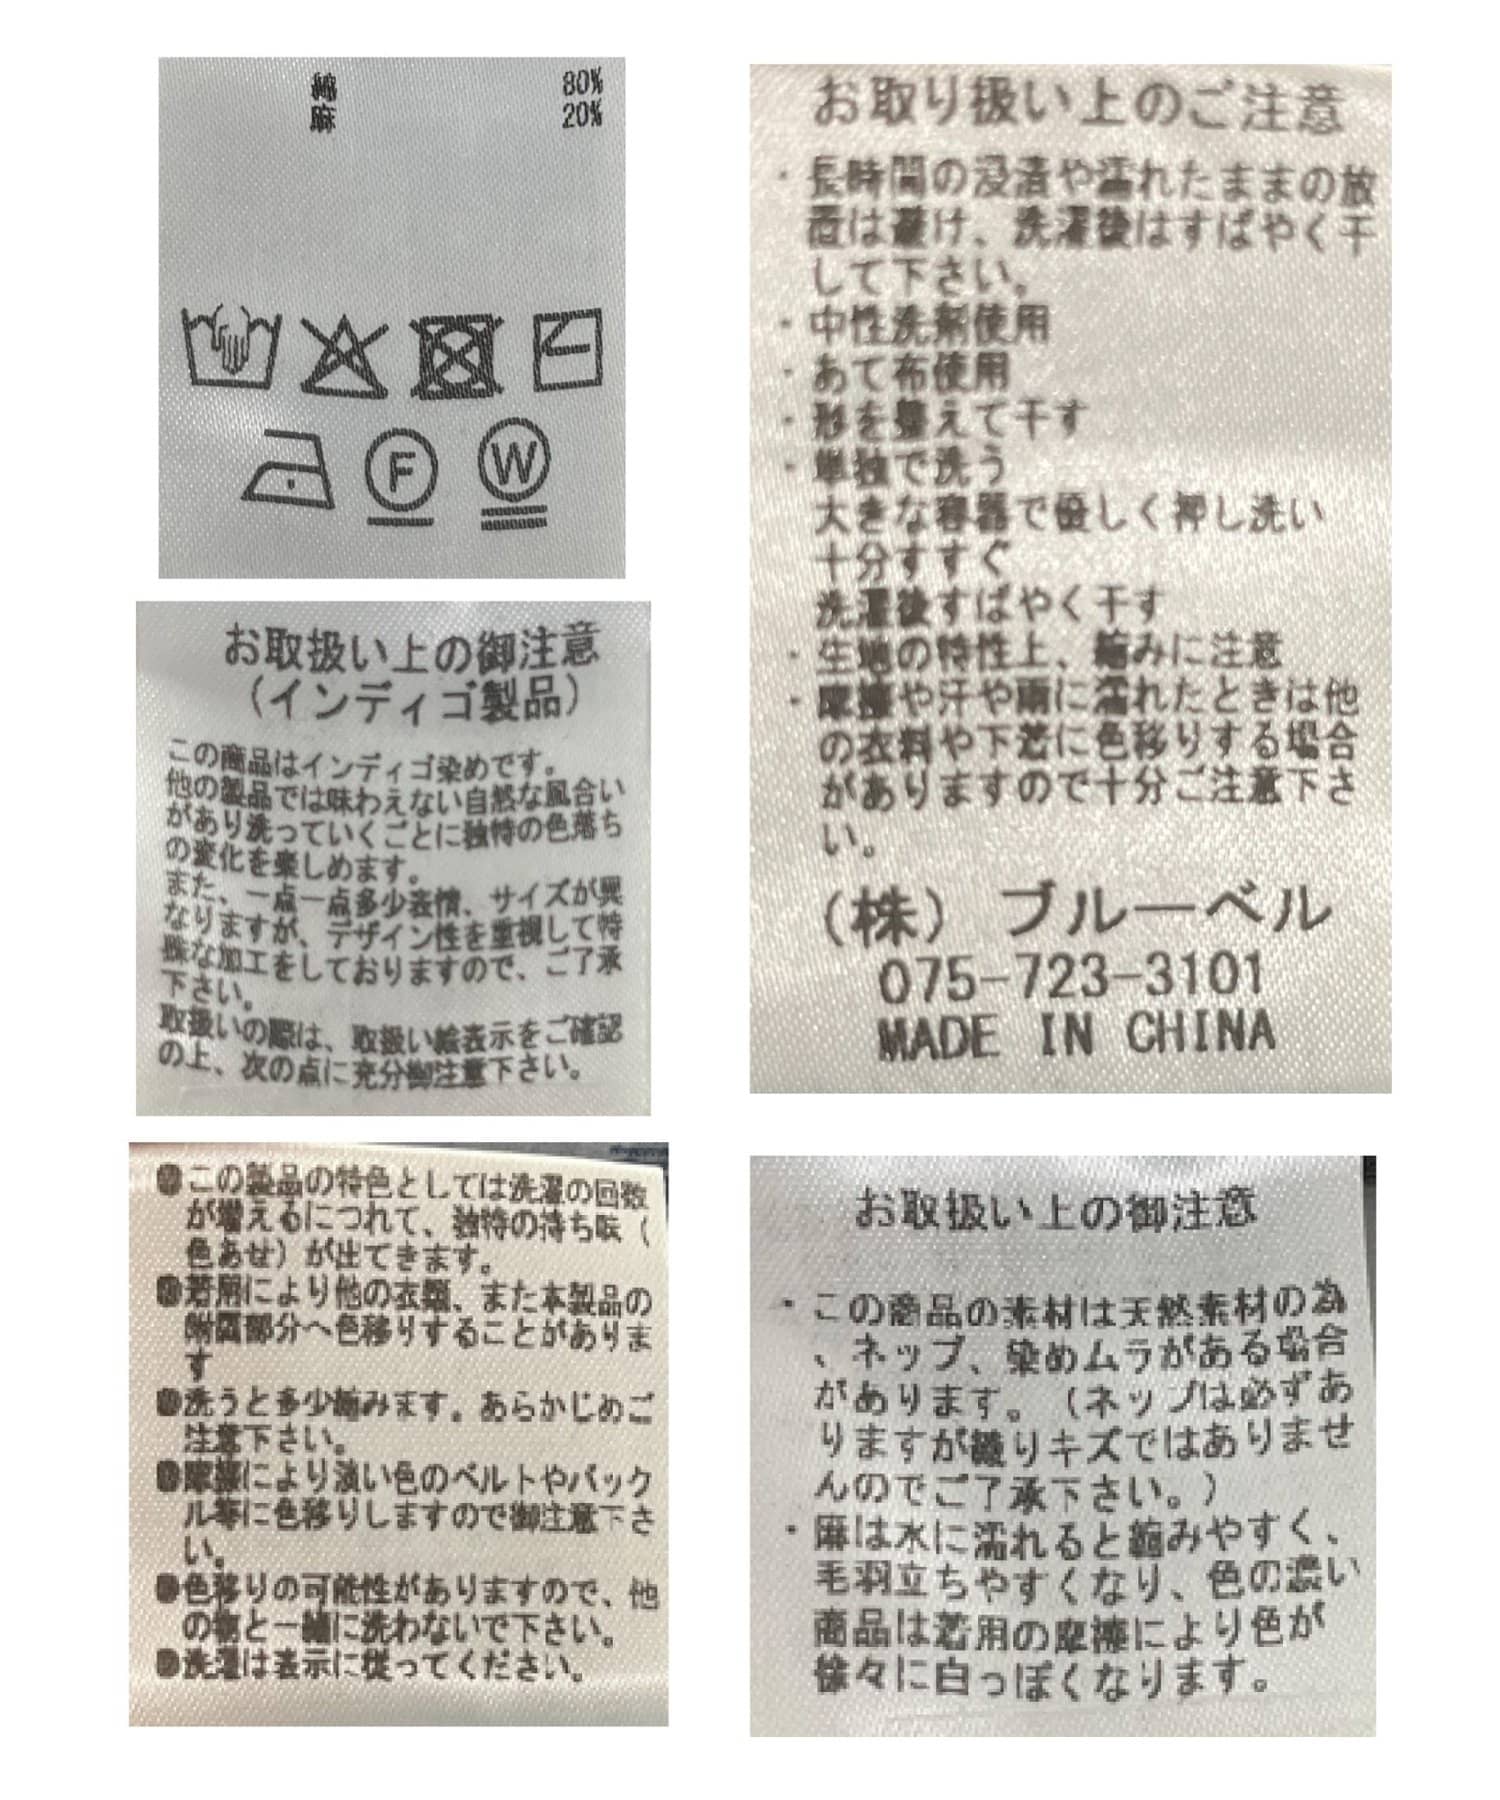 綿 80%
麻 20%
F
W
お取扱い上の御注意
（インディゴ製品）
この商品はインディゴ染めです。
他の製品では味わえない自然な風合い
があり洗っていくごとに独特の色落ち
の変化を楽しめます。
また、一点一点多少表情、サイズが異
なりますが、デザイン性を重視して特
殊な加工をしておりますので、ご了承
下さい。
取扱いの際は、取扱い絵表示をご確認
の上、次の点に充分御注意下さい。
この製品の特色としては洗濯の回数
が増えるにつれて、独特の持ち味（
色あせ）が出てきます。
着用により他の衣類、また本製品の
附属部分へ色移りすることがありま
す
洗うと多少縮みます。あらかじめご
注意下さい。
摩擦により淡い色のベルトやバック
ル等に色移りしますので御注意下さ
い。
色移りの可能性がありますので、他
の物と一緒に洗わないで下さい。
洗濯は表示に従ってください。
お取り扱い上のご注意
・長時間の浸漬や濡れたままの放
置は避け、洗濯後はすばやく干
して下さい。
・中性洗剤使用
・あて布使用
・形を整えて干す
・単独で洗う
大きな容器で優しく押し洗い
十分すすぐ
洗濯後すばやく干す
・生地の特性上、縮みに注意
・摩擦や汗や雨に濡れたときは他
の衣料や下着に色移りする場合
がありますので十分ご注意下さ
い。
（株）ブルーベル
075-723-3101
MADE IN CHINA
お取扱い上の御注意
・この商品の素材は天然素材の為
、ネップ、染めムラがある場合
があります。（ネップは必ずあ
りますが織りキズではありませ
んのでご了承下さい。）
・麻は水に濡れると縮みやすく、
毛羽立ちやすくなり、色の濃い
商品は着用の摩擦により色が
徐々に白っぽくなります。